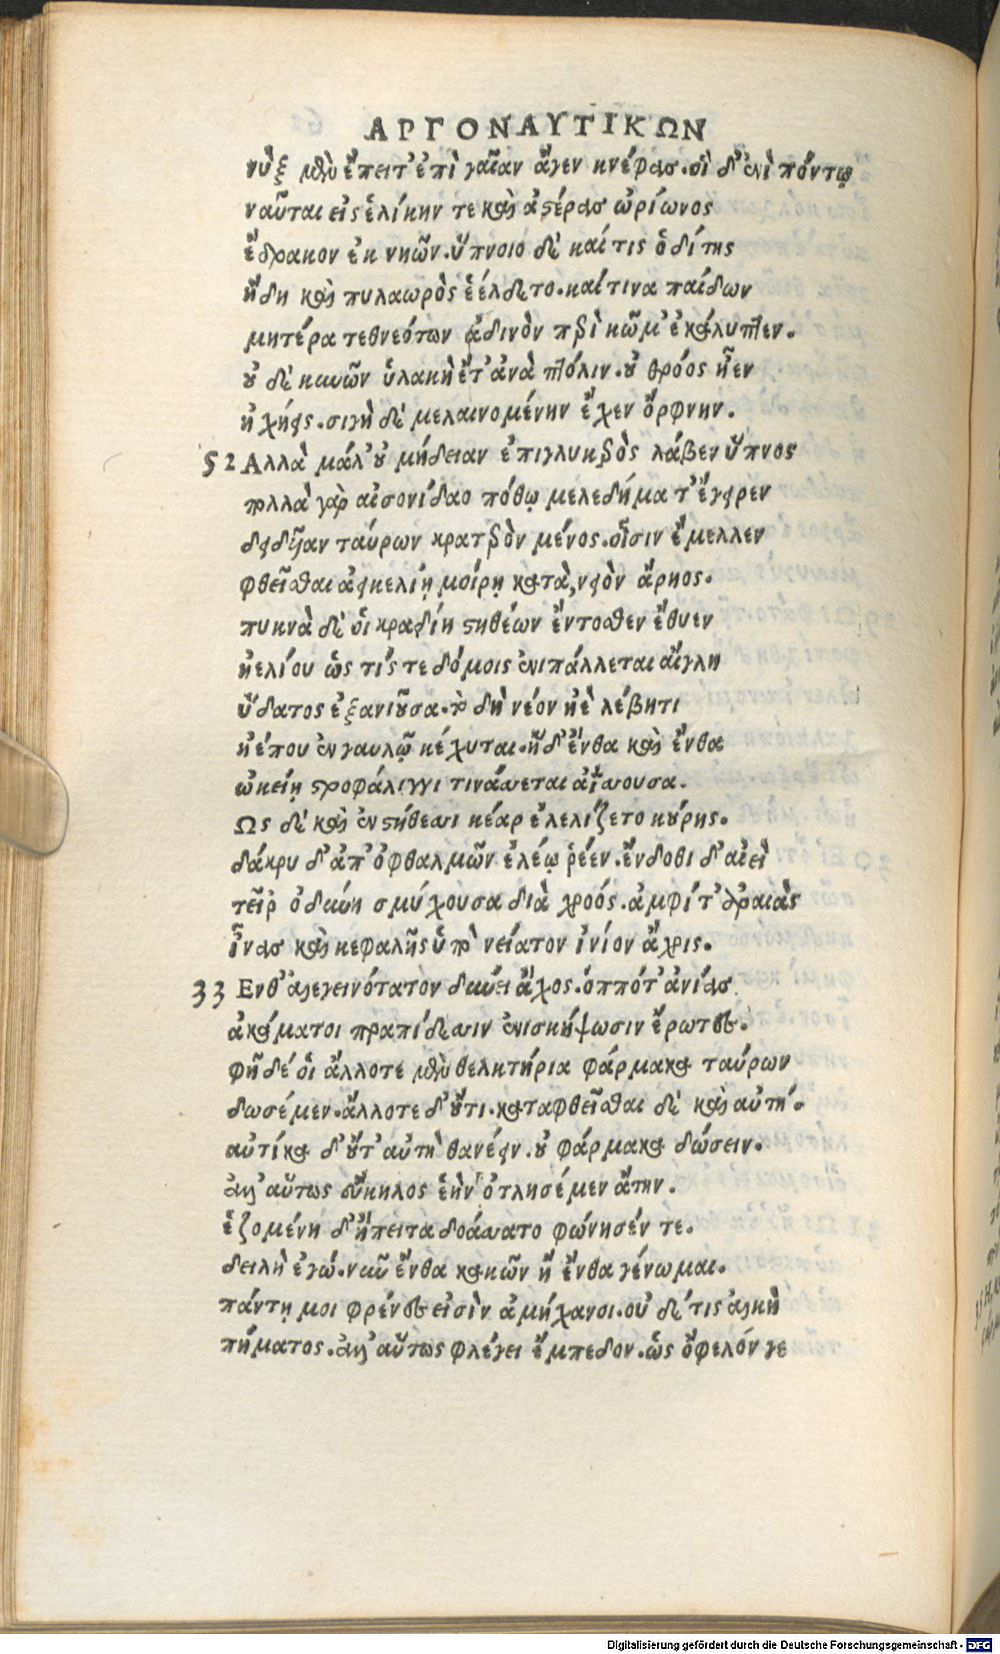 ΑΡΓΟΝΑΥΤΙΚΩΝ
νὺξ μὲν ἔπειτ' ἐπὶ γαῖαν ἄγεν κνέφας. οἱ δ' ἐνὶ πόντῳ
ναῦται εἰς ἑλίκην τε καὶ ἀστέρας ὠρίωνος
ἔδρακον ἐκ νηῶν. ὕπνοιο δὲ καί τις ὁδίτης
ἤδη καὶ πυλαωρὸς ἐέλδετο. καί τινα παίδων
μητέρα τεθνεότων ἀδινὸν περὶ κῶμ' ἐκάλυπτεν.
οὐδὲ κυνῶν ὑλακὴ ἔτ' ἀνὰ πτόλιν. οὐ θρόος ἦεν
ἠχήεις. σιγὴ δὲ μελαινομένην ἔχεν ὄρφνην.
52 Αλλὰ μάλ' οὐ μήδειαν ἐπιγλυκερὸς λάβεν ὕπνος
πολλὰ γὰρ αἰσονίδαο πόθῳ μελεδήματ' ἔγειρεν
δειδυῖαν ταύρων κρατερὸν μένος. οἷσιν ἔμελλεν
φθεῖσθαι ἀεικελίῃ μοίρῃ κατὰ νειὸν ἄρηος.
πυκνὰ δέ οἱ κραδίη στηθέων ἔντοσθεν ἔθυεν
ἠελίου ὥς τίς τε δόμοις ἐνιπάλλεται αἴγλη
ὕδατος ἐξανιοῦσα. τὸ δὴ νέον ἠὲ λέβητι
ἠέ που ἐν γαυλῷ κέχυται. ἡ δ' ἔνθα καὶ ἔνθα
ὠκείῃ στροφάλιγγι τινάσσεται ἀΐσσουσα.
Ως δὲ καὶ ἐν στήθεσσι κέαρ ἐλελίζετο κούρης.
δάκρυ δ' ἀπ' ὀφθαλμῶν ἐλέῳ ῥέεν. ἔνδοθι δ' αἰεὶ
τεῖρ' ὀδύνη σμύχουσα διὰ χροός. ἀμφί τ' ἀραιὰς
ἶνας καὶ κεφαλῆς ὑπὸ νείατον ἰνίον ἄχρις.
33 Ενθ' ἀλεγεινότατον δύνει ἄχος. ὁππότ' ἀνίας
ἀκάματοι πραπίδεσσιν ἐνισκήψωσιν ἔρωτες.
φῆ δέ οἱ ἄλλοτε μὲν θελκτήρια φάρμακα ταύρων
δωσέμεν. ἄλλοτε δ' οὔτι. καταφθεῖσθαι δὲ καὶ αὐτή.
αὐτίκα δ' οὔτ' αὐτὴ θανέειν. οὐ φάρμακα δώσειν.
ἀλλ' αὔτως εὔκηλος ἑὴν ὀτλησέμεν ἄτην.
ἑζομένη δ' ἤπειτα δοάσσατο φώνησέν τε.
δειλὴ ἐγώ. νῦν ἔνθα κακῶν ἢ ἔνθα γένωμαι.
πάντῃ μοι φρένες εἰσὶν ἀμήχανοι. οὐδέ τις ἀλκὴ
πήματος. ἀλλ' αὔτως φλέγει ἔμπεδον. ὡς ὄφελόν γε
Digitalisierung gefördert durch die Deutsche Forschungsgemeinschaft - DFG